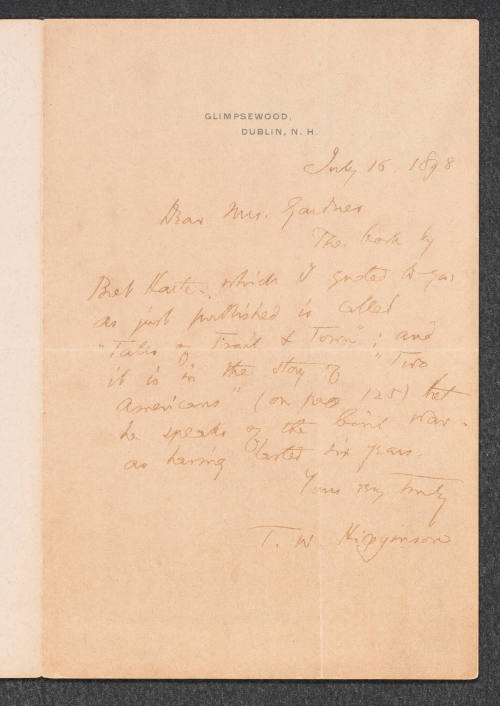 GLIMPSEWOOD,
DUBLIN, N. H.
July 16 1898
Dear Mrs. Gardner
The book by
Bret Harte, which I quoted to you
as just published is called
"Tales of Trail & Town"; and
it is in the story of "Two
Americans" (on page 125) that
he speaks of the Civil War
as having lasted six years.
Yours very truly
T. W. Higginson